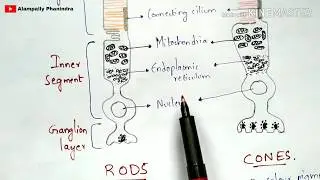 Alampally Phanindra
Made with KINEMASTER
Connecting cilium
Mitochondria
Inner
Segment
Endoplasmic
reticulum
Nucleus
Ganglion
layer
RODS
CONES.